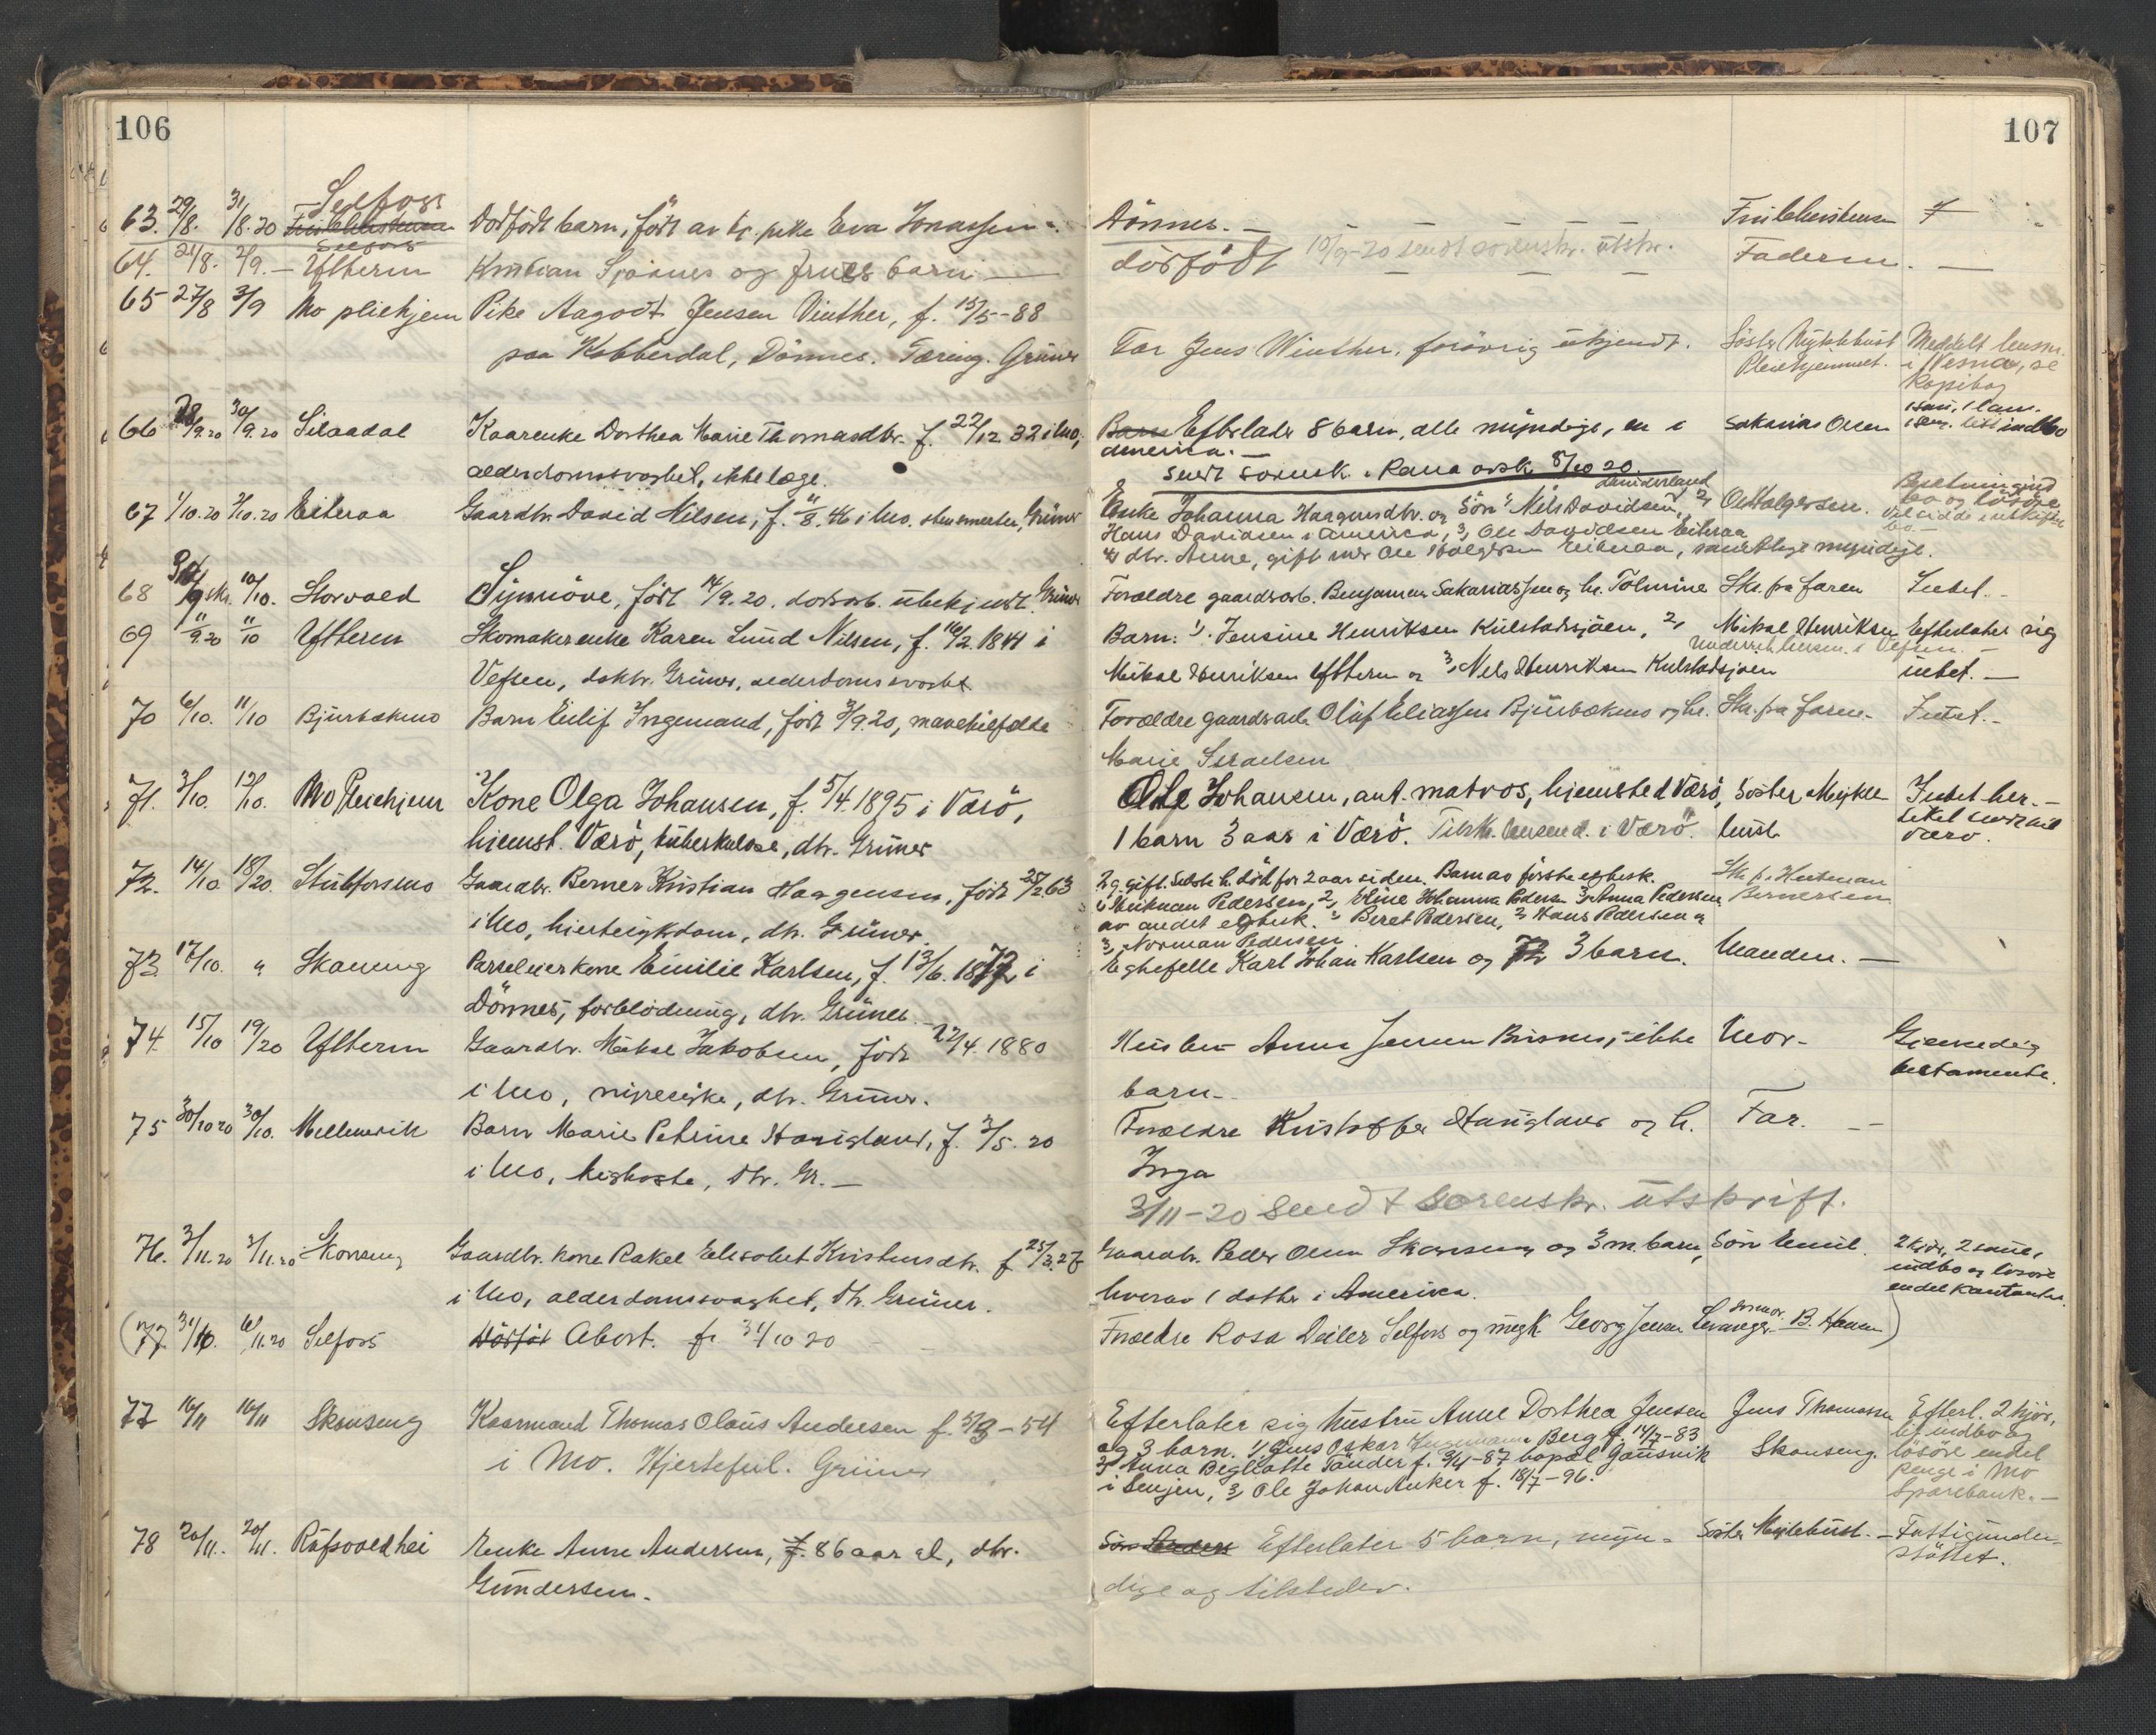 106
107
Selfors
63. 29/8. 31/8.20 Dødfødt barn, født av pike Eva Jonassen
Dönnes. —
Selfors
64. 21/8. 2/9. — Ytteren Kristian Sjaanes og frues barn —
dödfödt 10/9-20 sendt sorenskr. utskr. Faderen. —
65 27/8 3/9 Mo pleiehjem Pike Aagodt Jensen Vinther, f. 15/5-88
paa Kobberdal, Dönnes. Tæring. Grüner
Far Jens Winther, forövrig ukjendt. Söster Myklebust Meddelt lensm.
Pleiehjemmet. i Nesna, se
Kopibog
66 28/9.20 30/9.20 Kaarenke Dorthea Marie Thomasdtr. f. 22/12 32 i Mo,
alderdomssvaghet, ikke læge.
Barn Efterlater 8 barn, alle myndige, en i Sakarias Olsen
America. —
sendt sorensk. i Rana avsk 8/10 20.
67 1/10.20 2/10.20 Eiteraa Gaardbr. David Nilsen, f. 11/8. 46 i Mo. Grüner
Enke Johanna Haagensdtr. og Sön 1, Nels Davidsen, 2, Ole Holgersen.
Hans Davidsen i America, 3, Ole Davidsen Eiteraa
4, dtr. Anne, gift med Ole Holgersen Eiteraa, samtlige myndige.
68 10/10. Storvold Synnöve, födt 14/9.20. dödsaars. ubekjendt. Grüner
Forældre gaardsarb. Benjamin Sakariassen og h. Tolmine Skr. fra faren Intet. -
69 11/9.20 11/10 Ytteren Skomakerenke Karen Lund Nilsen, f. 16/2. 1841 i
Vefsen, doktr. Grüner, alderdomssvaghet
Barn: 1, Jensine Henriksen Kulstadsjöen, 2, Mikal Henriksen Efterlater sig
Underret lensm. i Vefsen. —
Mikal Henriksen Ytteren og 3, Nels Henriksen Kulstadsjöen intet. —
70 6/10. 11/10 Bjurbækmo Barn Eilif Ingemand, födt 3/9.20, mavetilfælde
Forældre gaardsarb. Olüf Eliassen Bjurbækmo og h. Skr. fra faren. Intet. -
Marie Israelsen
71. 3/10. 12/10. Mo Pleiehjem Kone Olga Johansen, f. 5/4. 1895 i Værö,
hjemst. Værö, tuberkulose, dtr. Grüner
Ole Johansen, ant. matros, hjemsted Værö, Söster Mykle- Intet her. —
1 barn 3 aar i Værö. Tilskr. lensmd. i Værö. bust Værö.
72. 14/10. 18/20. Stübforsmo Gaardbr. Berner Kristian Haagensen, födt 25/2.63
i Mo, hjertesygdom, dtr. Grüner.
2 g. gift. Sidste h. död for 2 aar siden. Barn av förste egtesk. Skr. fr. Hertman
Bernersen
av andet egtesk. 1, Beret Pedersen, 2, Hans Pedersen og
3, Norman Pedersen
73. 17/10. " Skonseng Parseleierkone Emilie Karlsen, f. 13/6. 1872, i
Dönnes, forblödning, dtr. Grüner.
Egtefelle Karl Johan Karlsen og 3 barn. Manden. —
74. 15/10 19/20 Ytteren Gaardbr. Mikal Jakobsen, födt 22/4. 1880
i Mo, nyresyke, dtr. Grüner.
Hustru Anna Jensen ikke Mor. Gjensidig
barn. testamente.
75 30/10 20 30/10. Mellomvik Barn Marie Petrine Haugland, f. 3/5. 20
i Mo, kighoste, dtr. Gr. —
Forældre Kristoffer Haugland og h. Far. —
Inga
3/11-20 Sendt Sorenskr. utskrift.
76. 3/11.20 3/11.20 Skonseng Gaardbr. kone Rakel Elisabet Kristensdtr. f. 25/3.27
i Mo, alderdomssvaghet, dtr. Grüner.
Gaardbr. Peder Olsen Skonseng og 3 m. barn, Sön Emil. 2 kjör, 2 sauer,
indbo og lösöre
hvorav 1 datter i America. endel kontanter.
(77 31/10. 6/11.20 Selfors Dödför Abort. f. 31/10 20
Forældre Rosa Deiler Selfors og ungk. Georg Jensen Levanger. B. Hansen)
77 16/11 16/11 Skonseng Kaarmand Thomas Olaus Andersen f. 5/3-54
i Mo. Hjertefeil. Grüner
Efterlater sig hustru Anne Dorthea Jensen Jens Thomassen Efterl. 2 kjör,
og 3 barn. 1, Jens Oskar Berg f. 14/7-83 Skonseng. lit indbo og
2, Anna f. 9/4-87 bopæl Gausvik lösöre endel
i Senjen, 3, Ole Johan Anker f. 18/7-96. penge i Mo
Sparebank. —
78 20/11. 20/11. Röfsvoldhei Enke Anne Andersen, f. 86 aar gl, dtr.
Gundersen.
Efterlater 5 barn, myn- Söster Myklebust. — Fattigunder-
dige og tilstede. stöttet.